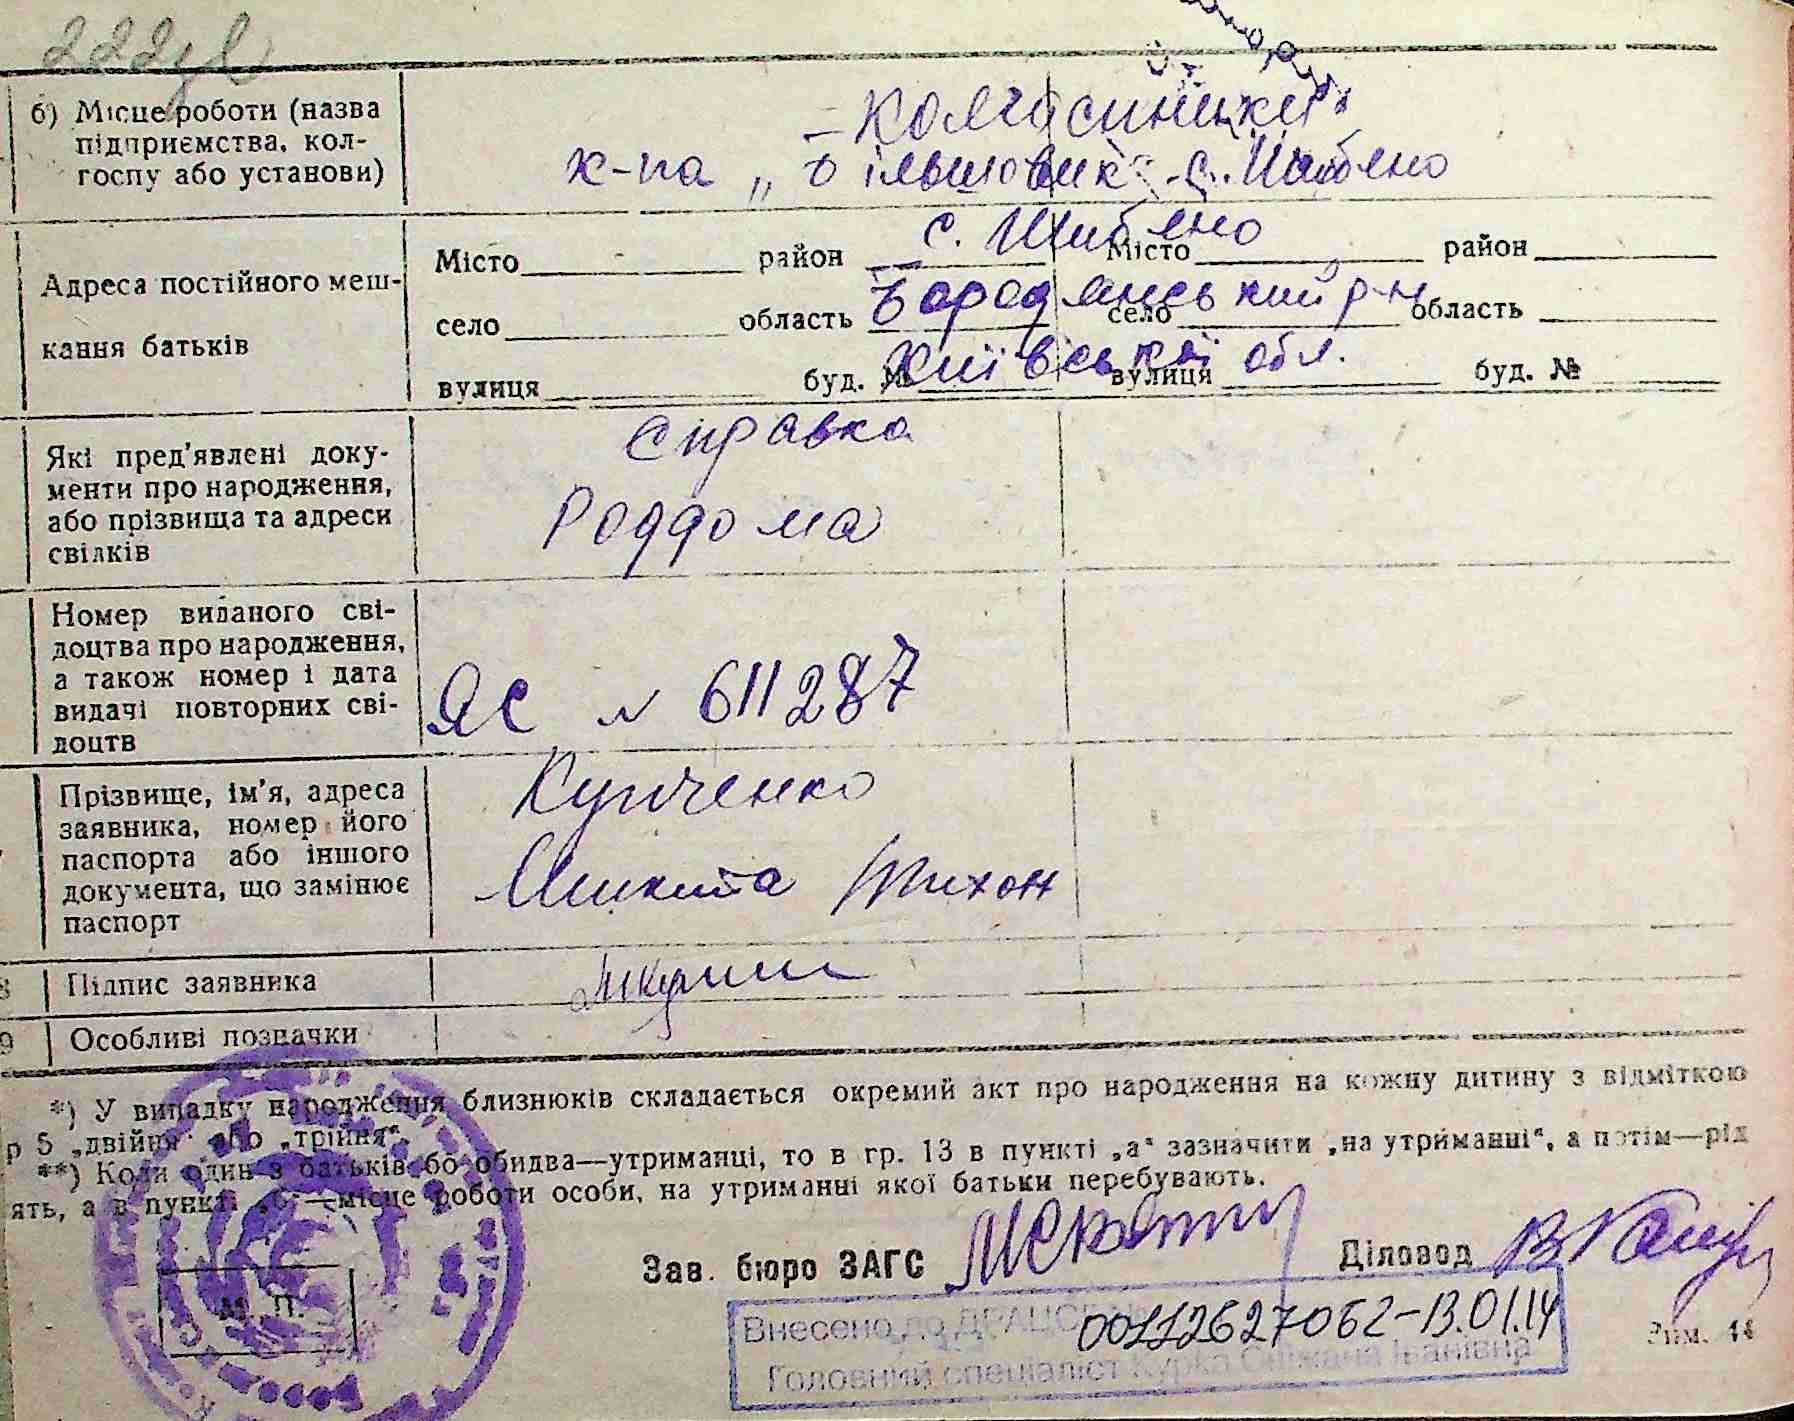 б) Місце роботи (назва
підприємства, кол-
госпу або установи)
к-па „Більшовик" с. Шибено
Адреса постійного меш-
кання батьків
Місто район с. Шибено Місто район
село область Бородянський р-н село область
вулиця буд. № Київської обл. вулиця буд. №
Які пред'явлені доку-
менти про народження,
або прізвища та адреси
свідків
Справка
Роддома
Номер виданого сві-
доцтва про народження,
а також номер і дата
видачі повторних сві-
доцтв
ЯС № 611287
Прізвище, ім'я, адреса
заявника, номер його
паспорта або іншого
документа, що замінює
паспорт
Купченко
Микита Тихон
8 Підпис заявника
9 Особливі позначки
*) У випадку народження близнюків складається окремий акт про народження на кожну дитину з відміткою
р 5 „двійня" або „трійня".
**) Коли один з батьків або обидва—утриманці, то в гр. 13 в пункті „а" зазначити „на утриманні", а потім—рід
ять, а в пункті „б"—місце роботи особи, на утриманні якої батьки перебувають.
Зав. бюро ЗАГС Діловод
М. П.
Внесено до ДРАЦСГ № 00112627062-13.01.14
Головний спеціаліст Курка Сніжана Іванівна